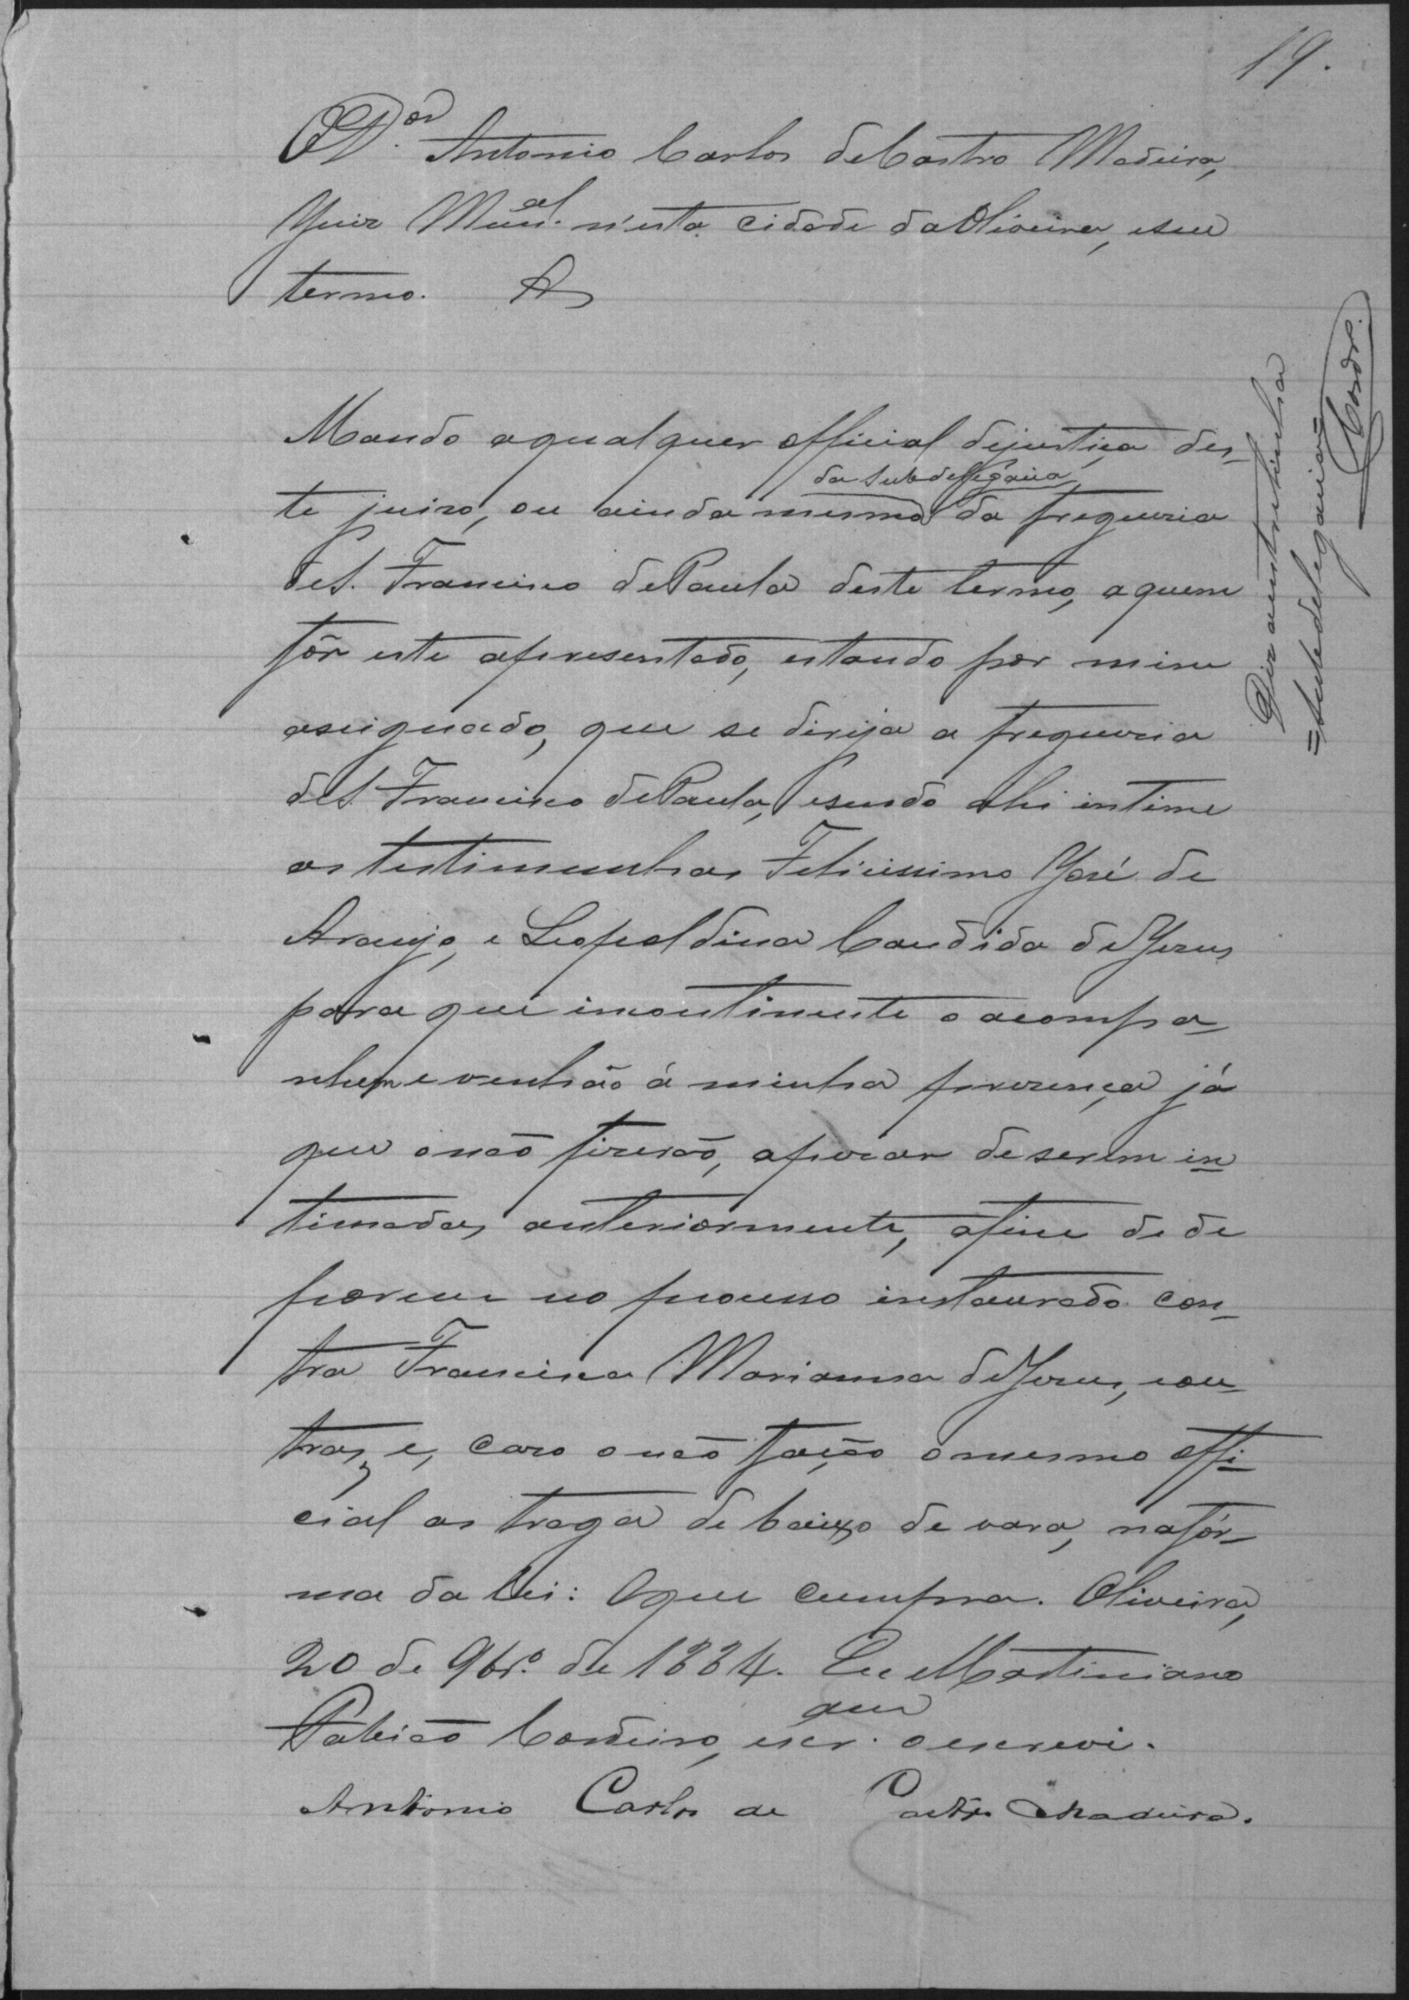 19.
O D.or Antonio Carlos de Castro Madeira,
Juiz Mun.al n'esta cidade da Oliveira, e seu
termo. &
Mando a qualquer official de justiça des-
da subdelegacia
te juizo, ou ainda mesmo da freguezia
de S. Francisco de Paula deste termo, a quem
fôr este apresentado, estando por mim
assignado, que se dirija a freguezia
de S. Francisco de Paula, e sendo ahi intime
as testimunhas Felicissimo José de
Araujo, e Leopoldina Candida de Jesus
para que incontinente o acompa-
nhem e venhão á minha presença já
que o não fizerão, apezar de serem in-
timadas anteriormente, afim de de
porem no processo instaurado con-
tra Francisca Marianna de Jesus, e ou-
tras, e, caso o não fação o mesmo offi-
cial as traga de baixo de vara, na fór-
ma da lei: O que cumpra. Oliveira,
20 de 9br.o de 1884. Eu Martiniano
Fabião Cordeiro, escr. que o escrevi.
Antonio Carlos de Castro Madeira.
Diz a entrelinha
= subdelegacia =
Cord.ro